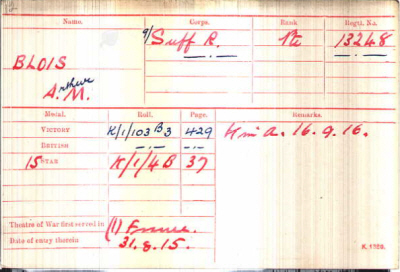 Name. Corps. Rank Regtl. No.
9/Suff R. Pte 13248
BLOIS
Arthur
A. M.
Medal. Roll. Page. Remarks.
VICTORY K/1/103 B3 429 K in A. 16.9.16.
BRITISH —.— —.—
15 STAR K/1/4B 37
Theatre of War first served in (1) France.
Date of entry therein 31.8.15.
K. 1380.